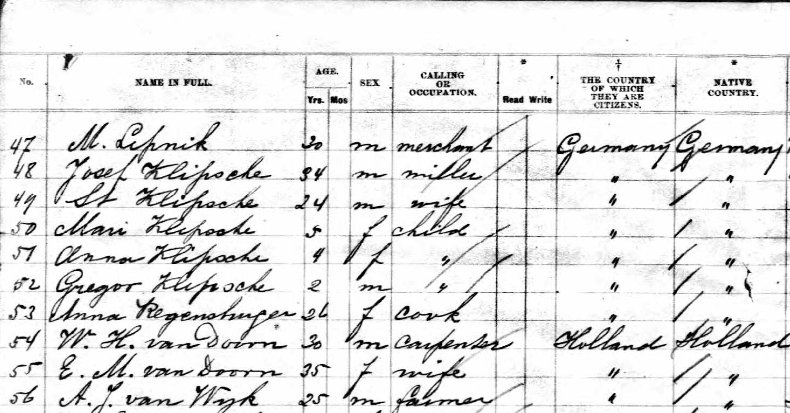 No. NAME IN FULL. AGE. Yrs. Mos SEX CALLING OR OCCUPATION. * Read Write † THE COUNTRY OF WHICH THEY ARE CITIZENS. * NATIVE COUNTRY.
47 M. Lipnik 30 m merchant Germany Germany
48 Josef Klipsche 34 m miller " "
49 St Klipsche 24 m wife " "
50 Mari Klipsche 5 f child " "
51 Anna Klipsche 4 f " " "
52 Gregor Klipsche 2 m " " "
53 Anna Regensburger 26 f cook " "
54 W. H. van Doorn 30 m carpenter Holland Holland
55 E. M. van Doorn 35 f wife " "
56 A. J. van Wyk 25 m farmer " "